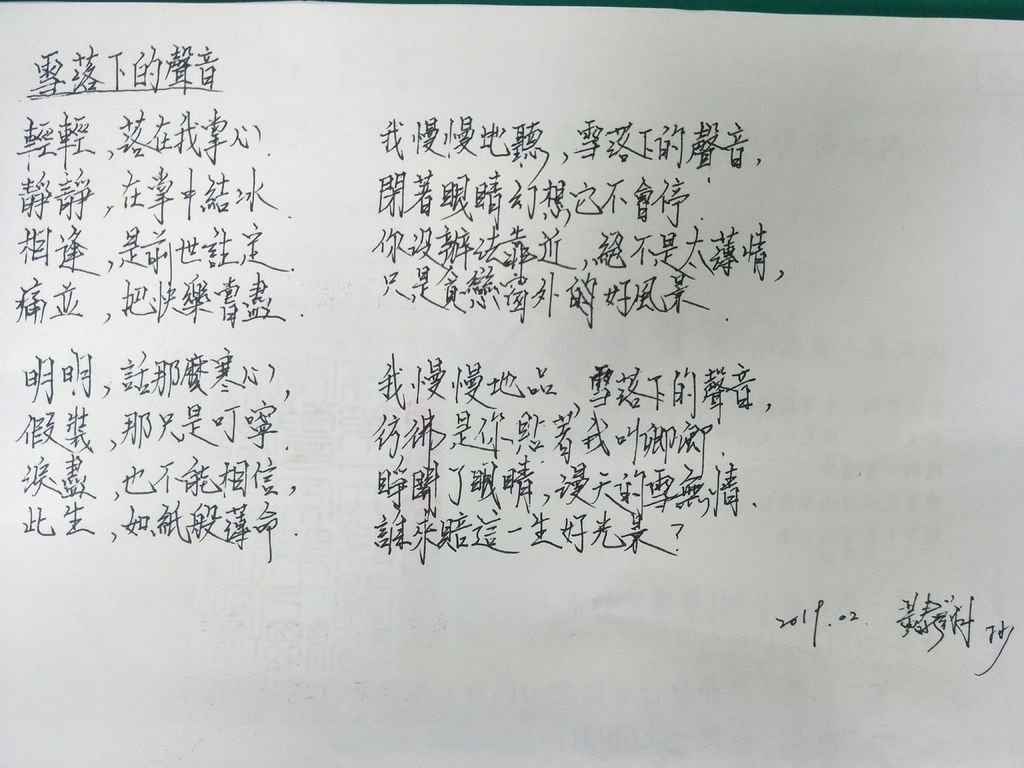 雪落下的聲音
輕輕,落在我掌心.
靜靜,在掌中結冰.
相逢,是前世註定.
痛並,把快樂嘗盡.
明明,話那麼寒心,
假裝,那只是叮嚀.
淚盡,也不能相信,
此生,如紙般薄命.
我慢慢地聽,雪落下的聲音,
閉著眼睛幻想,它不會停.
你沒辦法靠近,絕不是太薄情,
只是貪戀窗外的好風景.
我慢慢地品,雪落下的聲音,
彷彿是你貼著我叫卿卿.
睜開了眼睛,漫天的雪無情.
誰來賠這一生好光景?
2019.02 抄